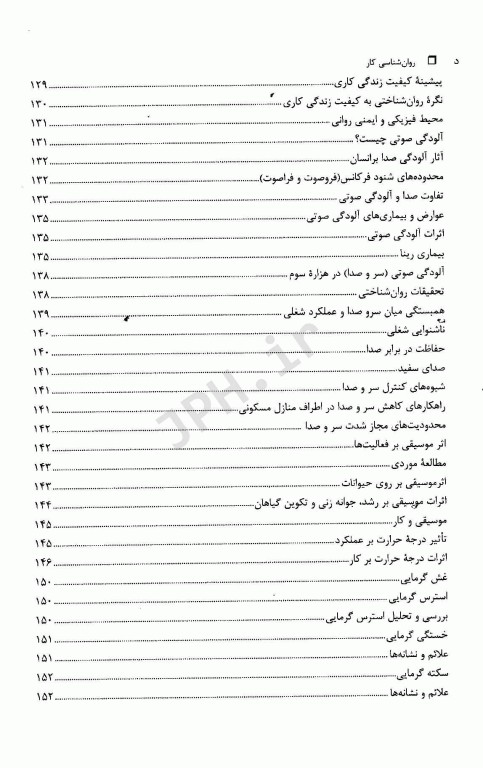 د ❒ روان‌شناسی کار
پیشینهٔ کیفیت زندگی کاری ۱۲۹
نگرهٔ روان‌شناختی به کیفیت زندگی کاری ۱۳۰
محیط فیزیکی و ایمنی روانی ۱۳۱
آلودگی صوتی چیست؟ ۱۳۱
آثار آلودگی صدا برانسان ۱۳۲
محدوده‌های شنود فرکانس(فروصوت و فراصوت) ۱۳۲
تفاوت صدا و آلودگی صوتی ۱۳۳
عوارض و بیماری‌های آلودگی صوتی ۱۳۵
اثرات آلودگی صوتی ۱۳۵
بیماری رینا ۱۳۵
آلودگی صوتی (سر و صدا) در هزارهٔ سوم ۱۳۸
تحقیقات روان‌شناختی ۱۳۸
همبستگی میان سرو صدا و عملکرد شغلی ۱۳۹
ناشنوایی شغلی ۱۴۰
حفاظت در برابر صدا ۱۴۰
صدای سفید ۱۴۱
شیوه‌های کنترل سر و صدا ۱۴۱
راهکارهای کاهش سر و صدا در اطراف منازل مسکونی ۱۴۱
محدودیت‌های مجاز شدت سر و صدا ۱۴۲
اثر موسیقی بر فعالیت‌ها ۱۴۲
مطالعهٔ موردی ۱۴۳
اثرموسیقی بر روی حیوانات ۱۴۳
اثرات موسیقی بر رشد، جوانه زنی و تکوین گیاهان ۱۴۴
موسیقی و کار ۱۴۵
تأثیر درجهٔ حرارت بر عملکرد ۱۴۵
اثرات درجهٔ حرارت بر کار ۱۴۶
غش گرمایی ۱۵۰
استرس گرمایی ۱۵۰
بررسی و تحلیل استرس گرمایی ۱۵۰
خستگی گرمایی ۱۵۱
علائم و نشانه‌ها ۱۵۱
سکته گرمایی ۱۵۲
علائم و نشانه‌ها ۱۵۲
JPH.ir